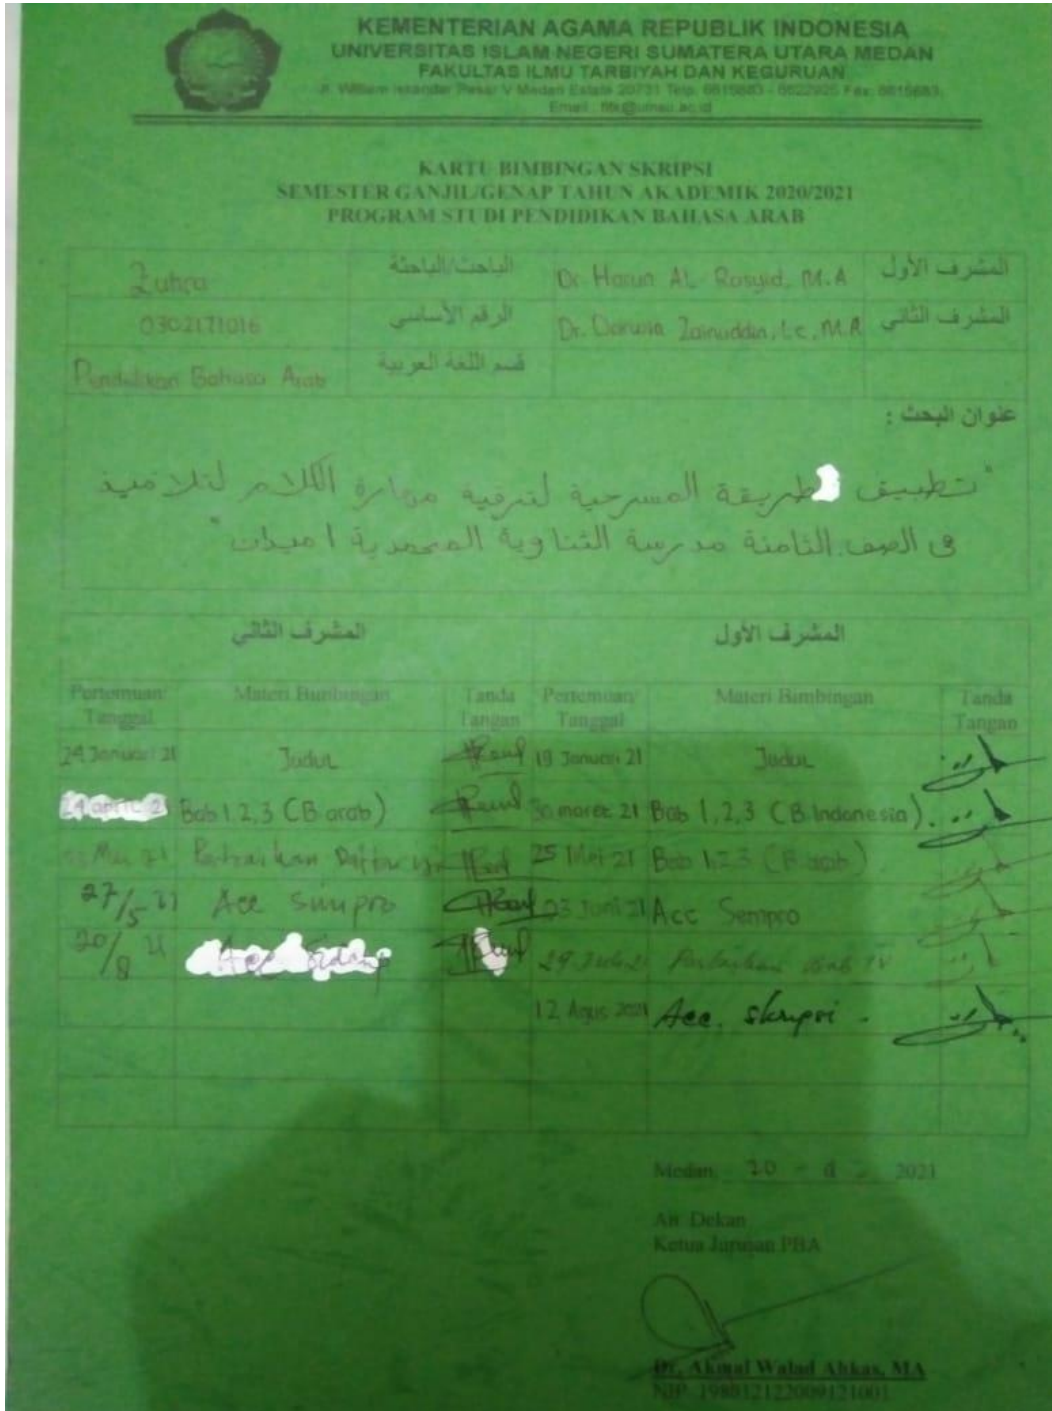 KEMENTERIAN AGAMA REPUBLIK INDONESIA
UNIVERSITAS ISLAM NEGERI SUMATERA UTARA MEDAN
FAKULTAS ILMU TARBIYAH DAN KEGURUAN
Jl. William Iskandar Pasar V Medan Estate 20731 Telp. 6615683 - 6622925 Fax. 6615683,
Email : fitk@uinsu.ac.id
KARTU BIMBINGAN SKRIPSI
SEMESTER GANJIL/GENAP TAHUN AKADEMIK 2020/2021
PROGRAM STUDI PENDIDIKAN BAHASA ARAB
Zuhra الباحث/الباحثة Dr. Harun AL-Rasyid, M.A المشرف الأول
0302171016 الرقم الأساسي Dr. Zainuddin, Lc, M.A المشرف الثاني
Pendidikan Bahasa Arab قسم اللغة العربية
عنوان البحث :
"تطبيق طريقة المسرحية لترقية مهارة الكلام لتلاميذ
في الصف الثامنة مدرسة الثناوية المحمدية ا ميدان"
المشرف الثاني المشرف الأول
Pertemuan/ Tanggal Materi Bimbingan Tanda Tangan Pertemuan/ Tanggal Materi Bimbingan Tanda Tangan
24 Januari 21 Judul 19 Januari 21 Judul
24 april 21 Bab 1.2,3 (B arab) 30 maret 21 Bab 1,2,3 (B.Indonesia)
Mei 21 Perbaikan Daftar isi 25 Mei 21 Bab 1,2,3 (B.arab)
27/5 21 Acc Simpro 03 Juni 21 Acc Sempro
20/8 21 Acc Sidang 29 Juli 21 Perbaikan Bab IV
12 Agus 2021 Acc. skripsi.
Medan, 20 - 2021
An. Dekan
Ketua Jurusan PBA
Dr. Akmal Walad Ahkas, MA
NIP. 198012122009121001